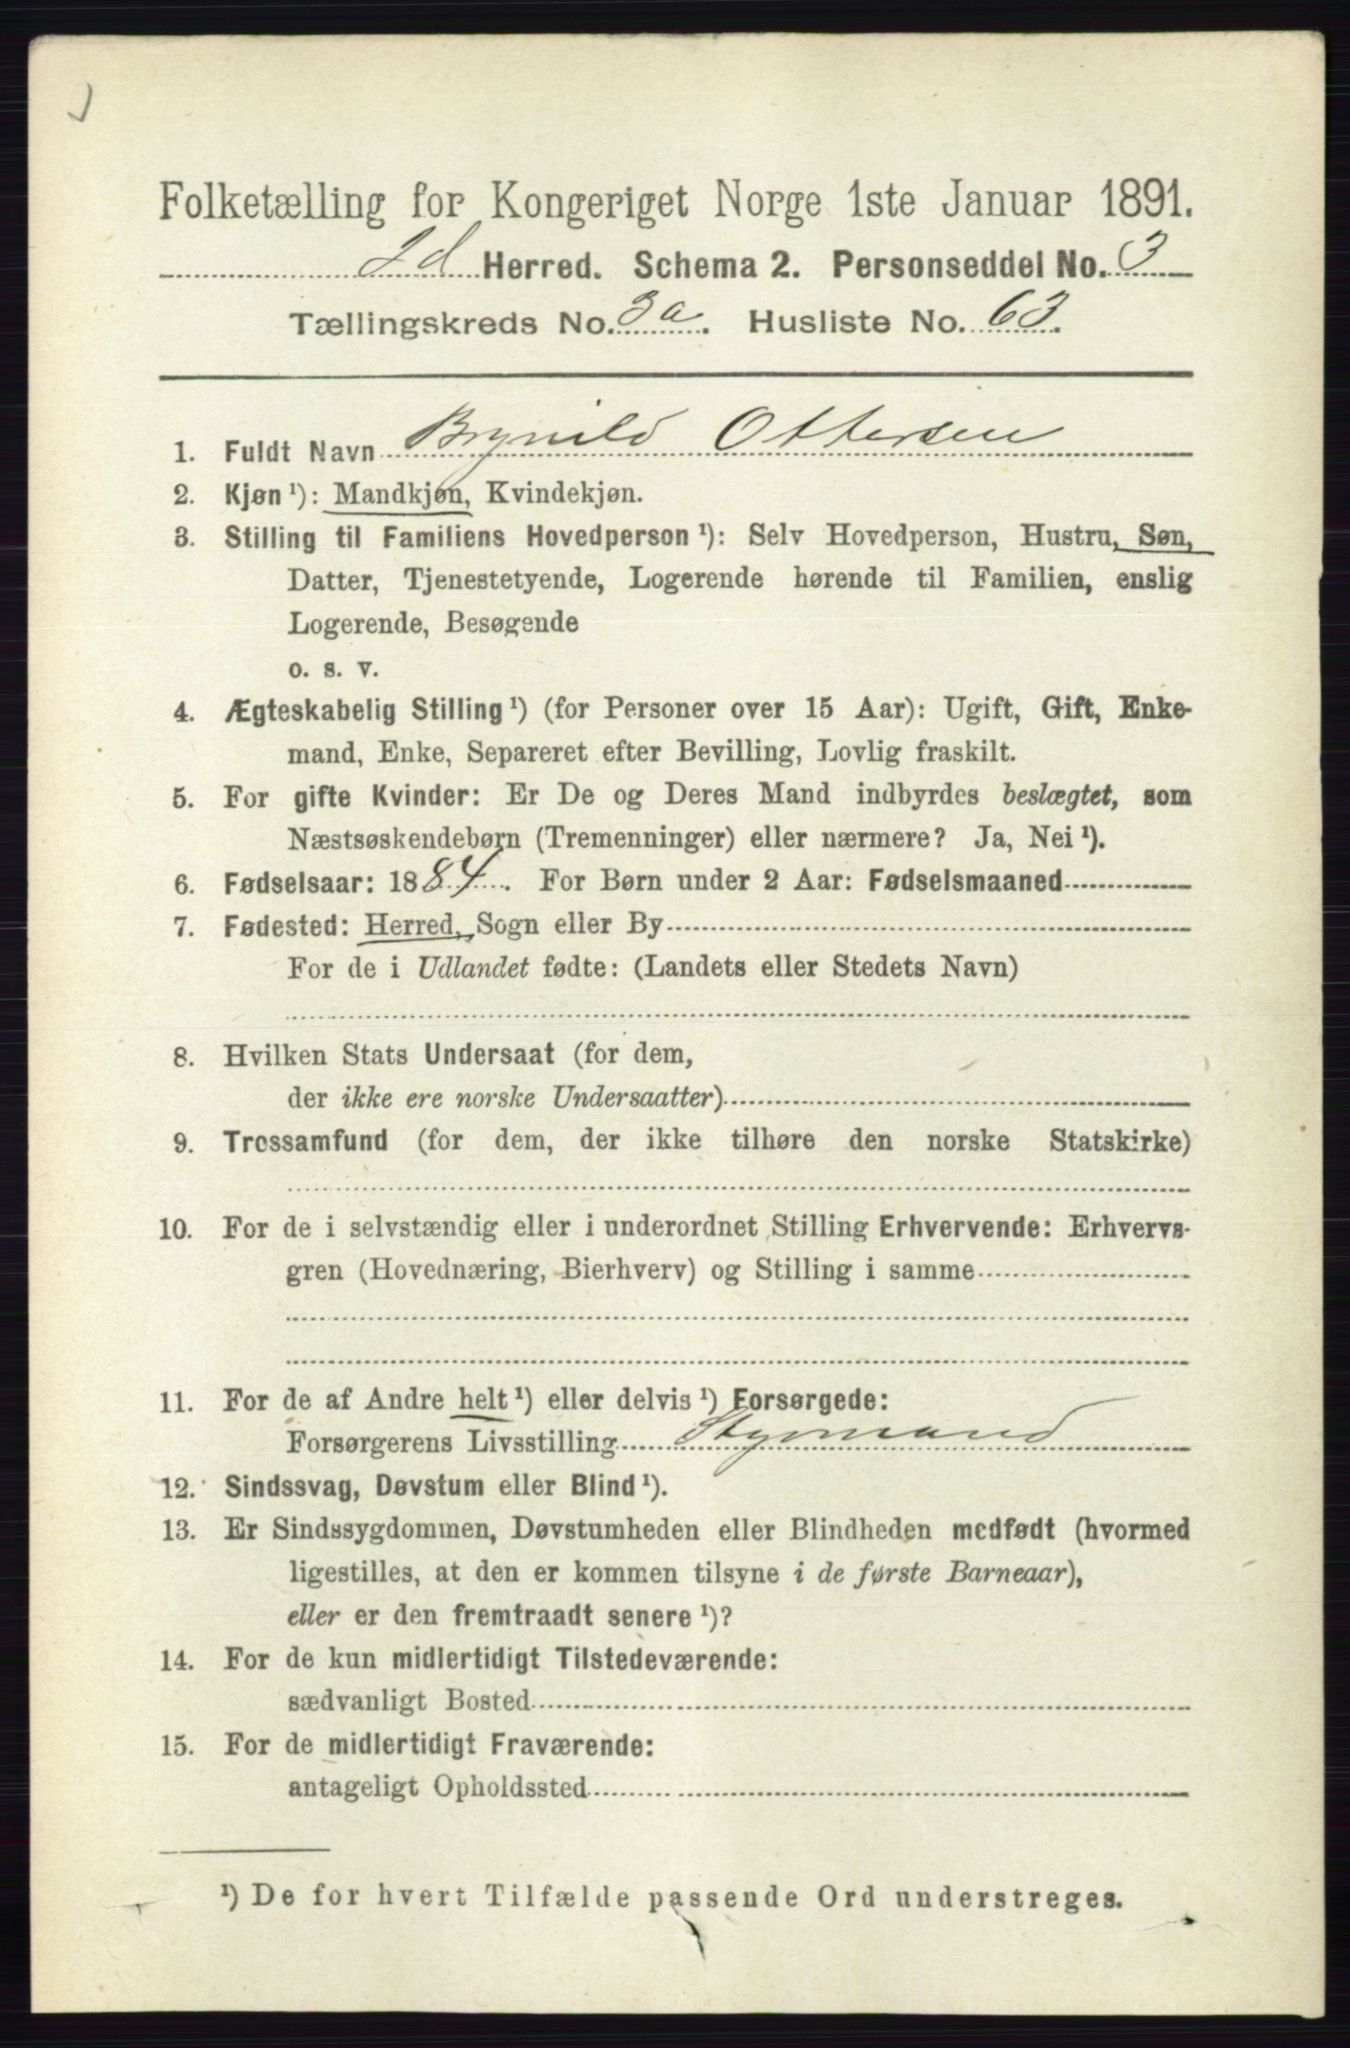 Folketælling for Kongeriget Norge 1ste Januar 1891.
Id Herred. Schema 2. Personseddel No. 3
Tællingskreds No. 3a. Husliste No. 63.
1. Fuldt Navn Brynild Ottersen
2. Kjøn ¹): Mandkjøn, Kvindekjøn.
3. Stilling til Familiens Hovedperson ¹): Selv Hovedperson, Hustru, Søn,
Datter, Tjenestetyende, Logerende hørende til Familien, enslig
Logerende, Besøgende
o. s. v.
4. Ægteskabelig Stilling ¹) (for Personer over 15 Aar): Ugift, Gift, Enke-
mand, Enke, Separeret efter Bevilling, Lovlig fraskilt.
5. For gifte Kvinder: Er De og Deres Mand indbyrdes beslægtet, som
Næstsøskendebørn (Tremenninger) eller nærmere? Ja, Nei ¹).
6. Fødselsaar: 1884. For Børn under 2 Aar: Fødselsmaaned
7. Fødested: Herred, Sogn eller By
For de i Udlandet fødte: (Landets eller Stedets Navn)
8. Hvilken Stats Undersaat (for dem,
der ikke ere norske Undersaatter)
9. Trossamfund (for dem, der ikke tilhøre den norske Statskirke)
10. For de i selvstændig eller i underordnet Stilling Erhvervende: Erhvervs-
gren (Hovednæring, Bierhverv) og Stilling i samme
11. For de af Andre helt ¹) eller delvis ¹) Forsørgede:
Forsørgerens Livsstilling Styrmand
12. Sindssvag, Døvstum eller Blind ¹).
13. Er Sindssygdommen, Døvstumheden eller Blindheden medfødt (hvormed
ligestilles, at den er kommen tilsyne i de første Barneaar),
eller er den fremtraadt senere ¹)?
14. For de kun midlertidigt Tilstedeværende:
sædvanligt Bosted
15. For de midlertidigt Fraværende:
antageligt Opholdssted
¹) De for hvert Tilfælde passende Ord understreges.